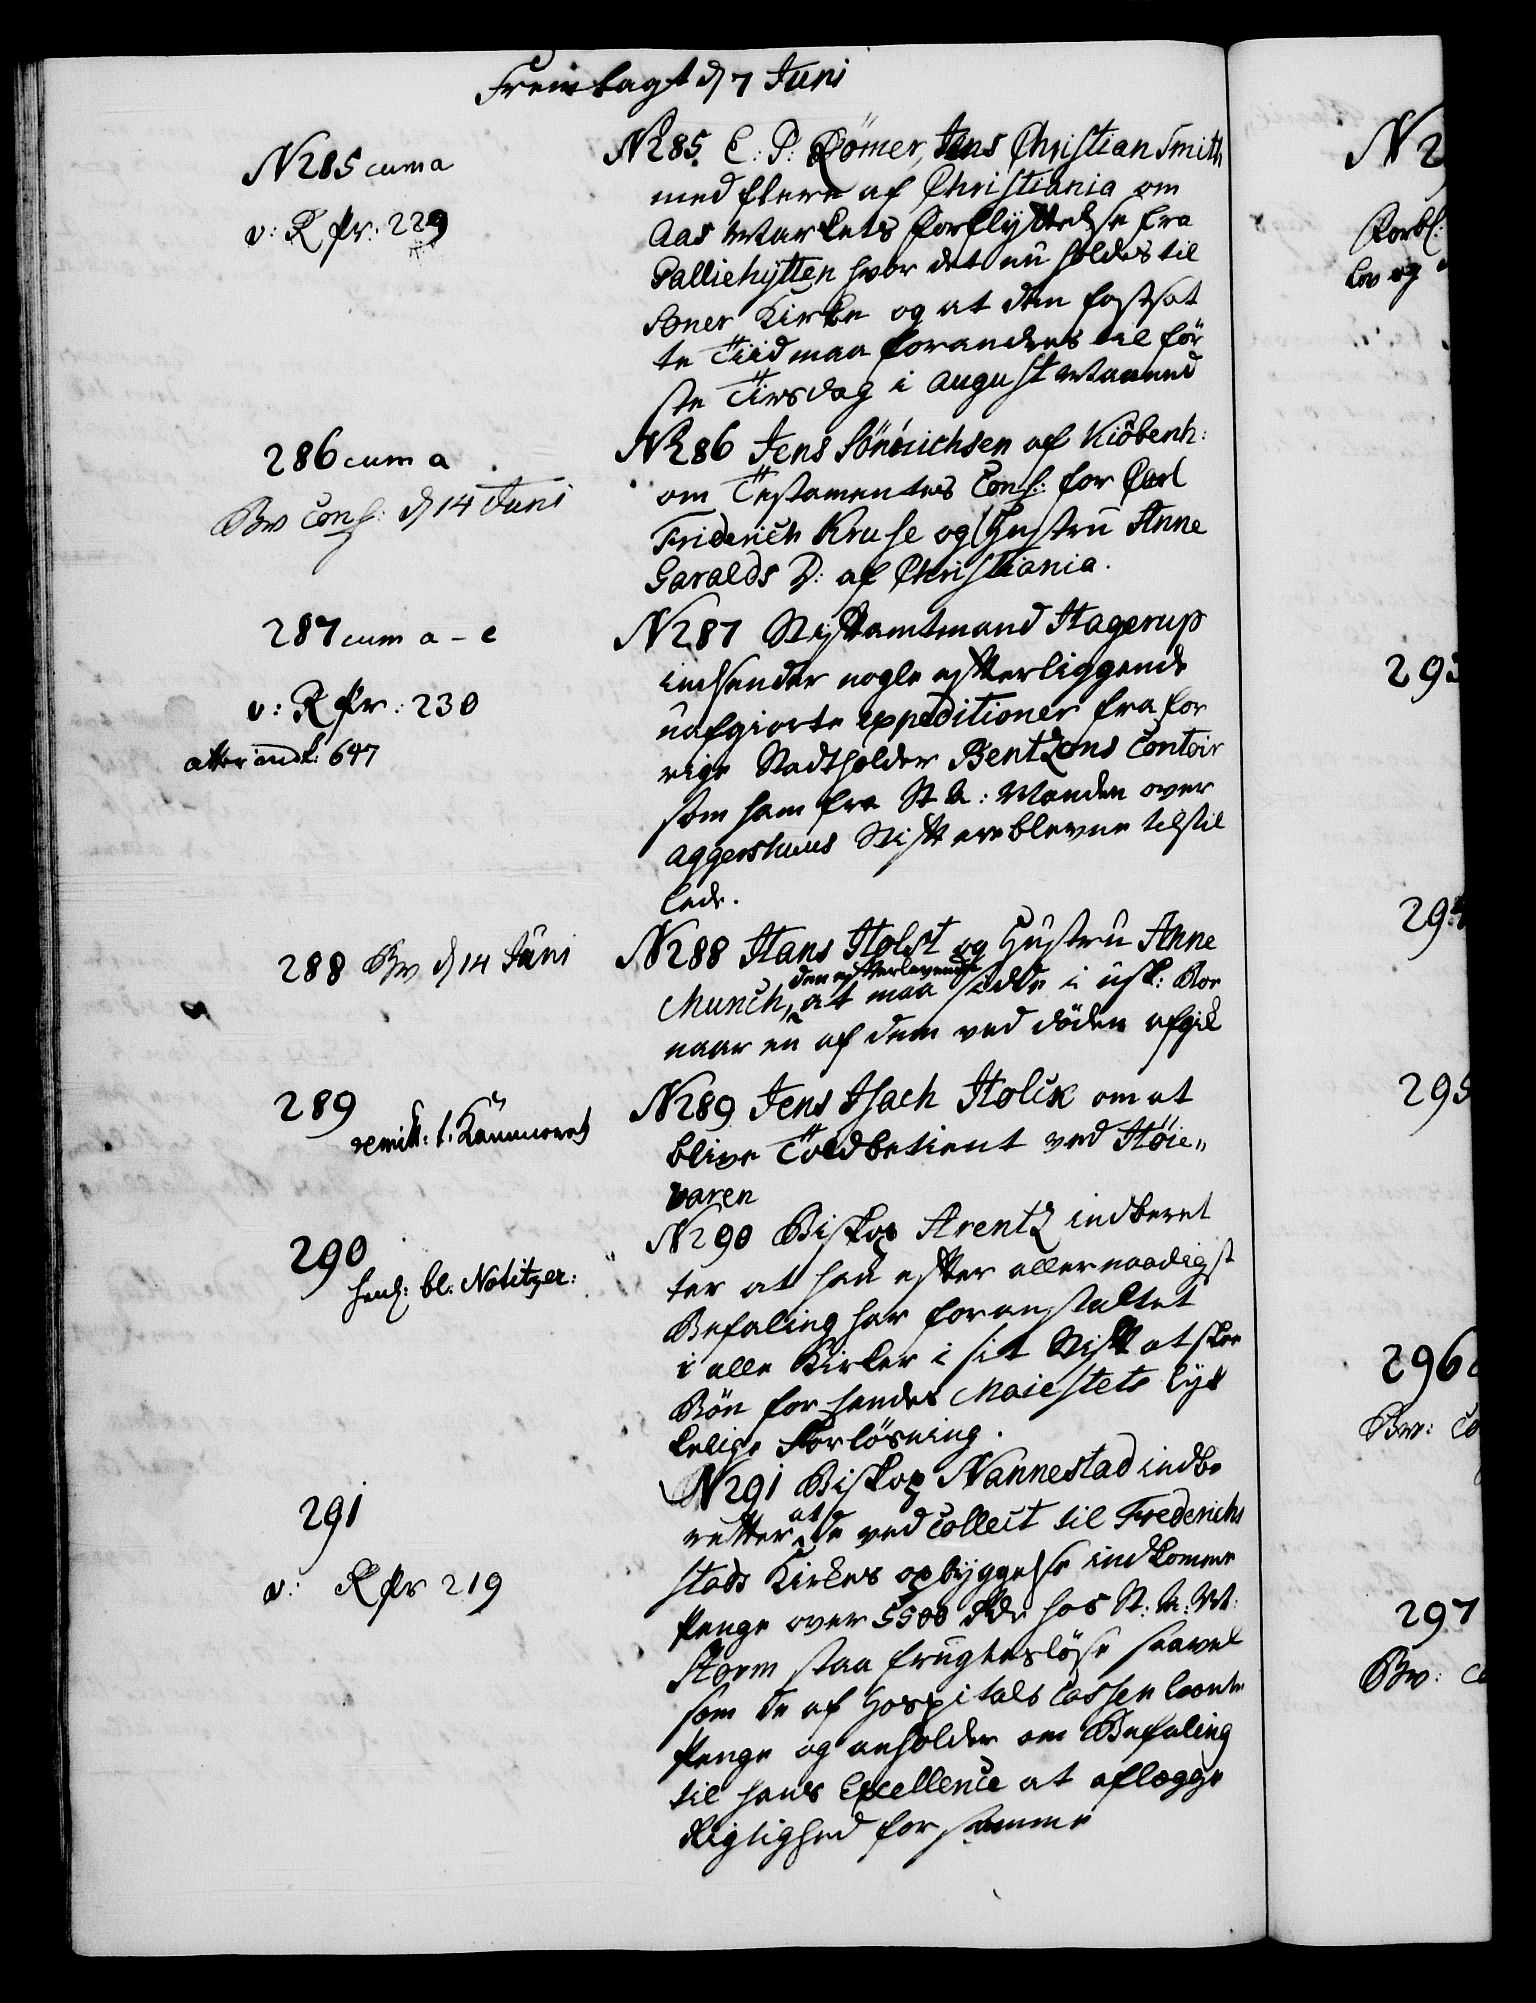 Fremlagt d 7 Juni
N 285 cum a
v: R Pr: 229
N 285. E: P: Römer, Jens Christian Smith
med flere af Christiania om
Aas Markets forflyttelse fra
Palliehytten hvor det nu holdes til
Soner Kirke og at den fastsat
te Tiid maa forandres til för
ste Tirsdag i August Maaned
286 cum a
Bev Conf: d 14 Juni
N 286 Jens Sönnichsen af Kiöbenh:
om Testamentes Conf: for Carl
Friderich Kruse og Hustru Anne
Garalds D: af Christiania.
287 cum a - e
v: R Pr: 230
atter indk: 647
N 287 Stiftamtmand Hagerup
indsender nogle efterliggende
uafgiorte expeditioner fra for
rige Stadtholder Bentzons Contoir
som ham fra St A: Manden over
Aggershuus Stift ere blevne tilstil
lede.
288 Bev d 14 Juni
N 288 Hans Holst og Hustru Anne
Munch, den efterlevende at maa sidde i usk: Boe
naar en af dem ved döden afgik
289
remitt: t. Kammeret
N 289 Jens Isach Holck om at
blive Toldbetient ved Höie-
varen
290
henl: bl. Notitzer:
N 290 Biskop Arentz indberet
ter at han efter allernaadigst
Befaling har foranstaltet
i alle Kirker i sit Stift at skee
Bön for hendes Maiestets lyk
kelige Forlösning.
291
v: R Pr 219
N 291 Biskop Nannestad indbe
retter at de ved Collect til Frederichs
stads Kirkes opbyggelse indkomne
Penge over 5500 Rdr hos St: A: M:
Storm staa frugtesløse saavel
som de af Hospitals Cassen laante
Penge og anholder om Befaling
til hans Excellence at aflægge
Rigtighed for samme
N 2
Forbl:
lov og
293
294
295
296
Bev: Co
297
Bev: C